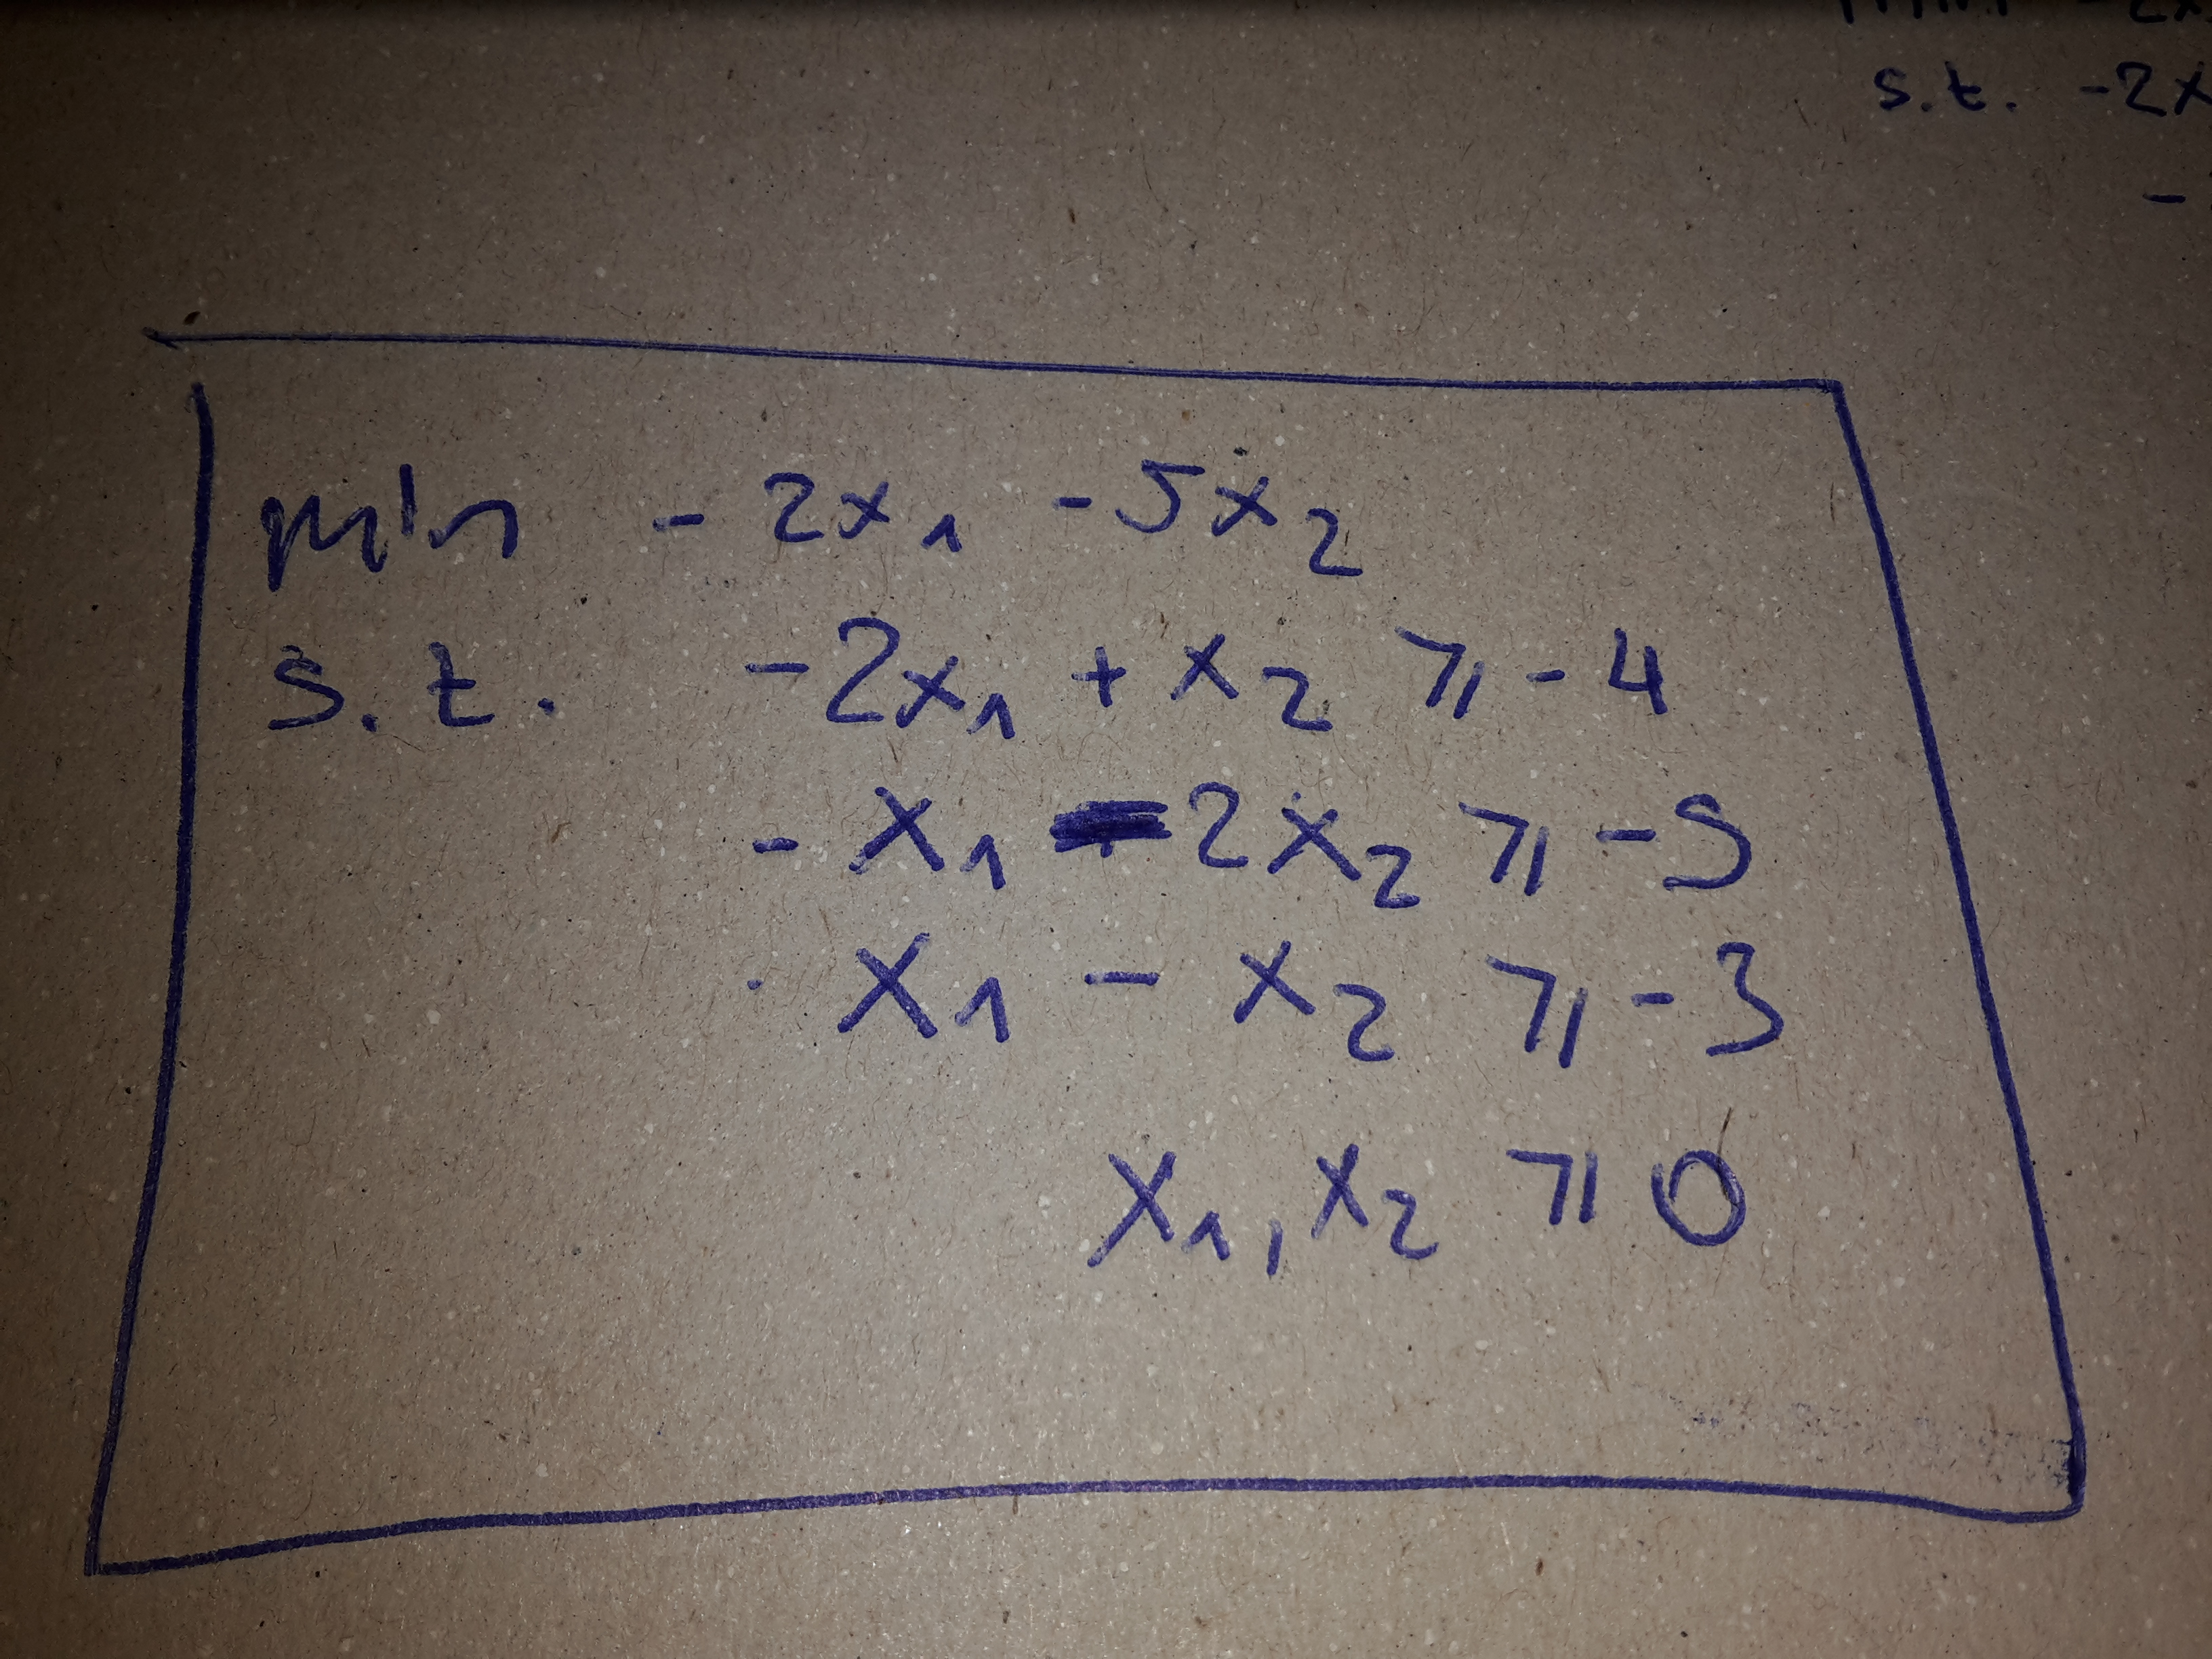 s.t. -2x
-
min -2x₁ -5x₂
s.t. -2x₁ + x₂ ⩾ -4
-x₁ - 2x₂ ⩾ -5
x₁ - x₂ ⩾ -3
x₁, x₂ ⩾ 0